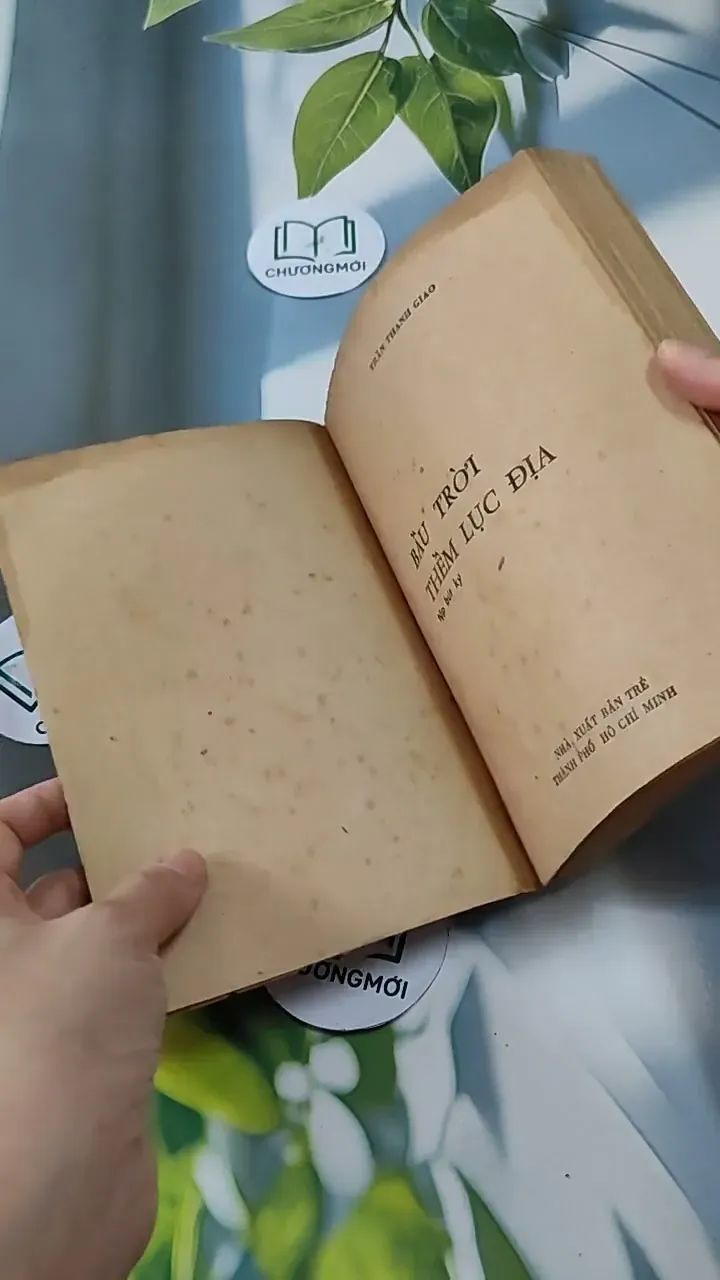 CHƯƠNGMỚI
TRẦN THANH GIAO
BẦU TRỜI
THỀM LỤC ĐỊA
Tập bút ký
NHÀ XUẤT BẢN TRẺ
THÀNH PHỐ HỒ CHÍ MINH
ƯƠNGMỚI